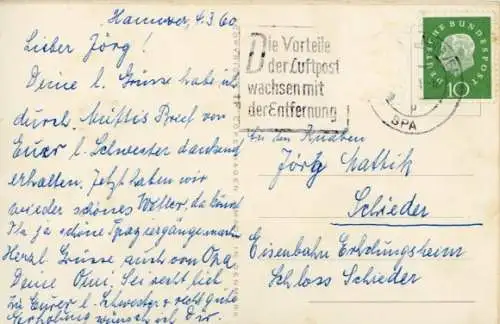 Hannover, 4.3.60
Lieber Jörg!
Deine l. Grüsse habe ich
durch Muttis Brief von
Eurer l. Schwester dankend
erhalten. Jetzt haben wir
wieder schönes Wetter, da könnt
Ihr ja schöne Spaziergänge machen
Herzl. Grüsse auch von Opa
Deine Omi. Sei recht lieb
zu Eurer l. Schwester & recht gute
Erholung wünsch ich Dir.
Die Vorteile
der Luftpost
wachsen mit
der Entfernung
DEUTSCHE BUNDESPOST
10
p
SPA
An den Knaben
Jörg Mattik
Schieder
Eisenbahn Erholungsheim
Schloss Schieder